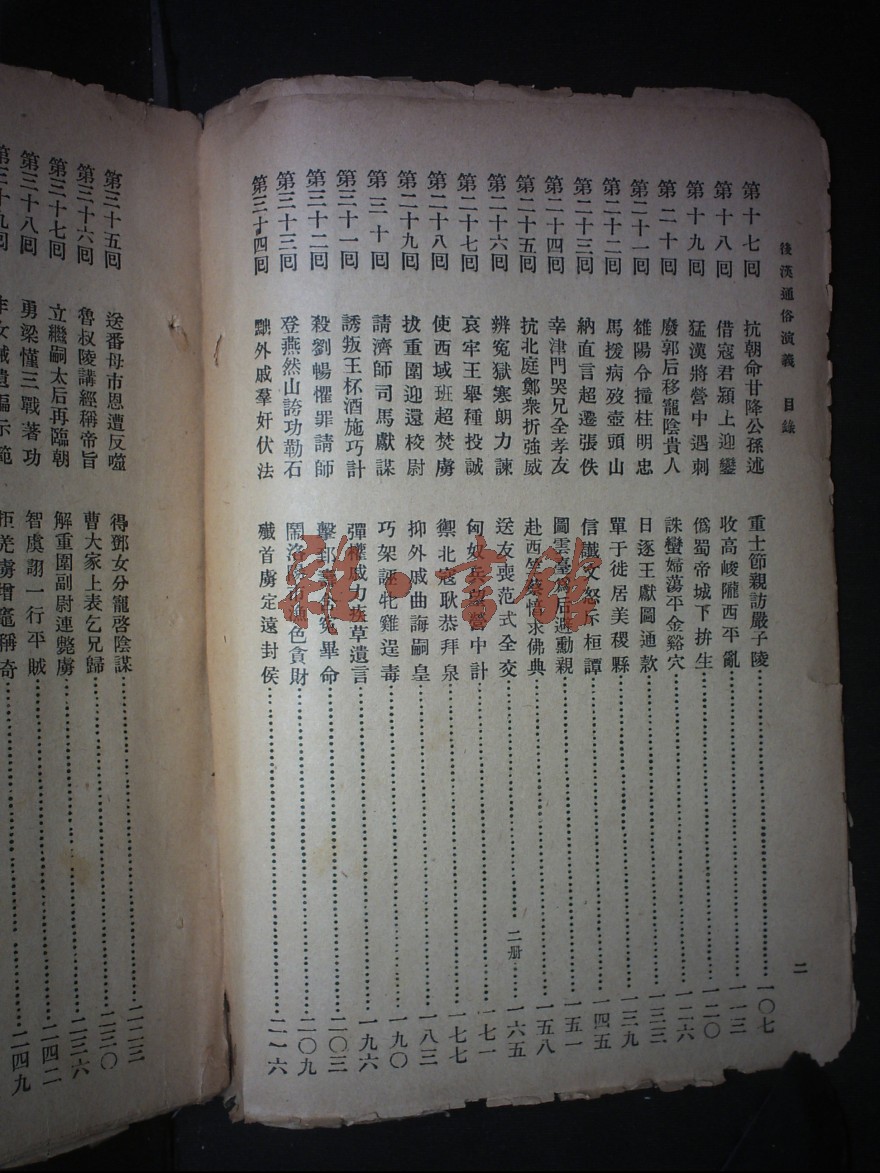 後漢通俗演義 目錄 二
第十七囘 抗朝命甘降公孫述 重士節親訪嚴子陵 一〇七
第十八囘 借寇君潁上迎鑾 收高峻隴西平亂 一一三
第十九囘 猛漢將營中遇刺 僞蜀帝城下拚生 一二〇
第二十囘 廢郭后移寵陰貴人 誅蠻婦蕩平金谿穴 一二六
第二十一囘 雒陽令撞柱明忠 日逐王獻圖通款 一三三
第二十二囘 馬援病歿壺頭山 單于徙居美稷縣 一三九
第二十三囘 納直言超遷張佚 信讖文怒斥桓譚 一四五
第二十四囘 幸津門哭兄全孝友 圖雲臺爲后避勳親 一五一
第二十五囘 抗北庭鄭衆折強威 赴西竺蔡愔求佛典 一五八
第二十六囘 辨冤獄寒朗力諫 送友喪范式全交 二册 一六五
第二十七囘 哀牢王舉種投誠 匈奴兵望營中計 一七一
第二十八囘 使西域班超焚虜 禦北寇耿恭拜泉 一七七
第二十九囘 拔重圍迎還校尉 抑外戚曲誨嗣皇 一八三
第三十囘 請濟師司馬獻謀 巧架誣牝雞逞毒 一九〇
第三十一囘 誘叛王杯酒施巧計 彈權戚力疾草遺言 一九六
第三十二囘 殺劉暢懼罪請師 擊郅壽含冤畢命 二〇三
第三十三囘 登燕然山誇功勒石 鬧洛陽市漁色貪財 二〇九
第三十四囘 黜外戚羣奸伏法 殲首虜定遠封侯 二一六
第三十五囘 送番母市恩遭反噬 得鄧女分寵啓陰謀 二二三
第三十六囘 魯叔陵講經稱帝旨 曹大家上表乞兄歸 二三〇
第三十七囘 立繼嗣太后再臨朝 解重圍副尉連斃虜 二三六
第三十八囘 勇梁慬三戰著功 智虞詡一行平賊 二四二
第三十九囘 作女誡遺編示範 拒羌虜增竈稱奇 二四九
雜·書館